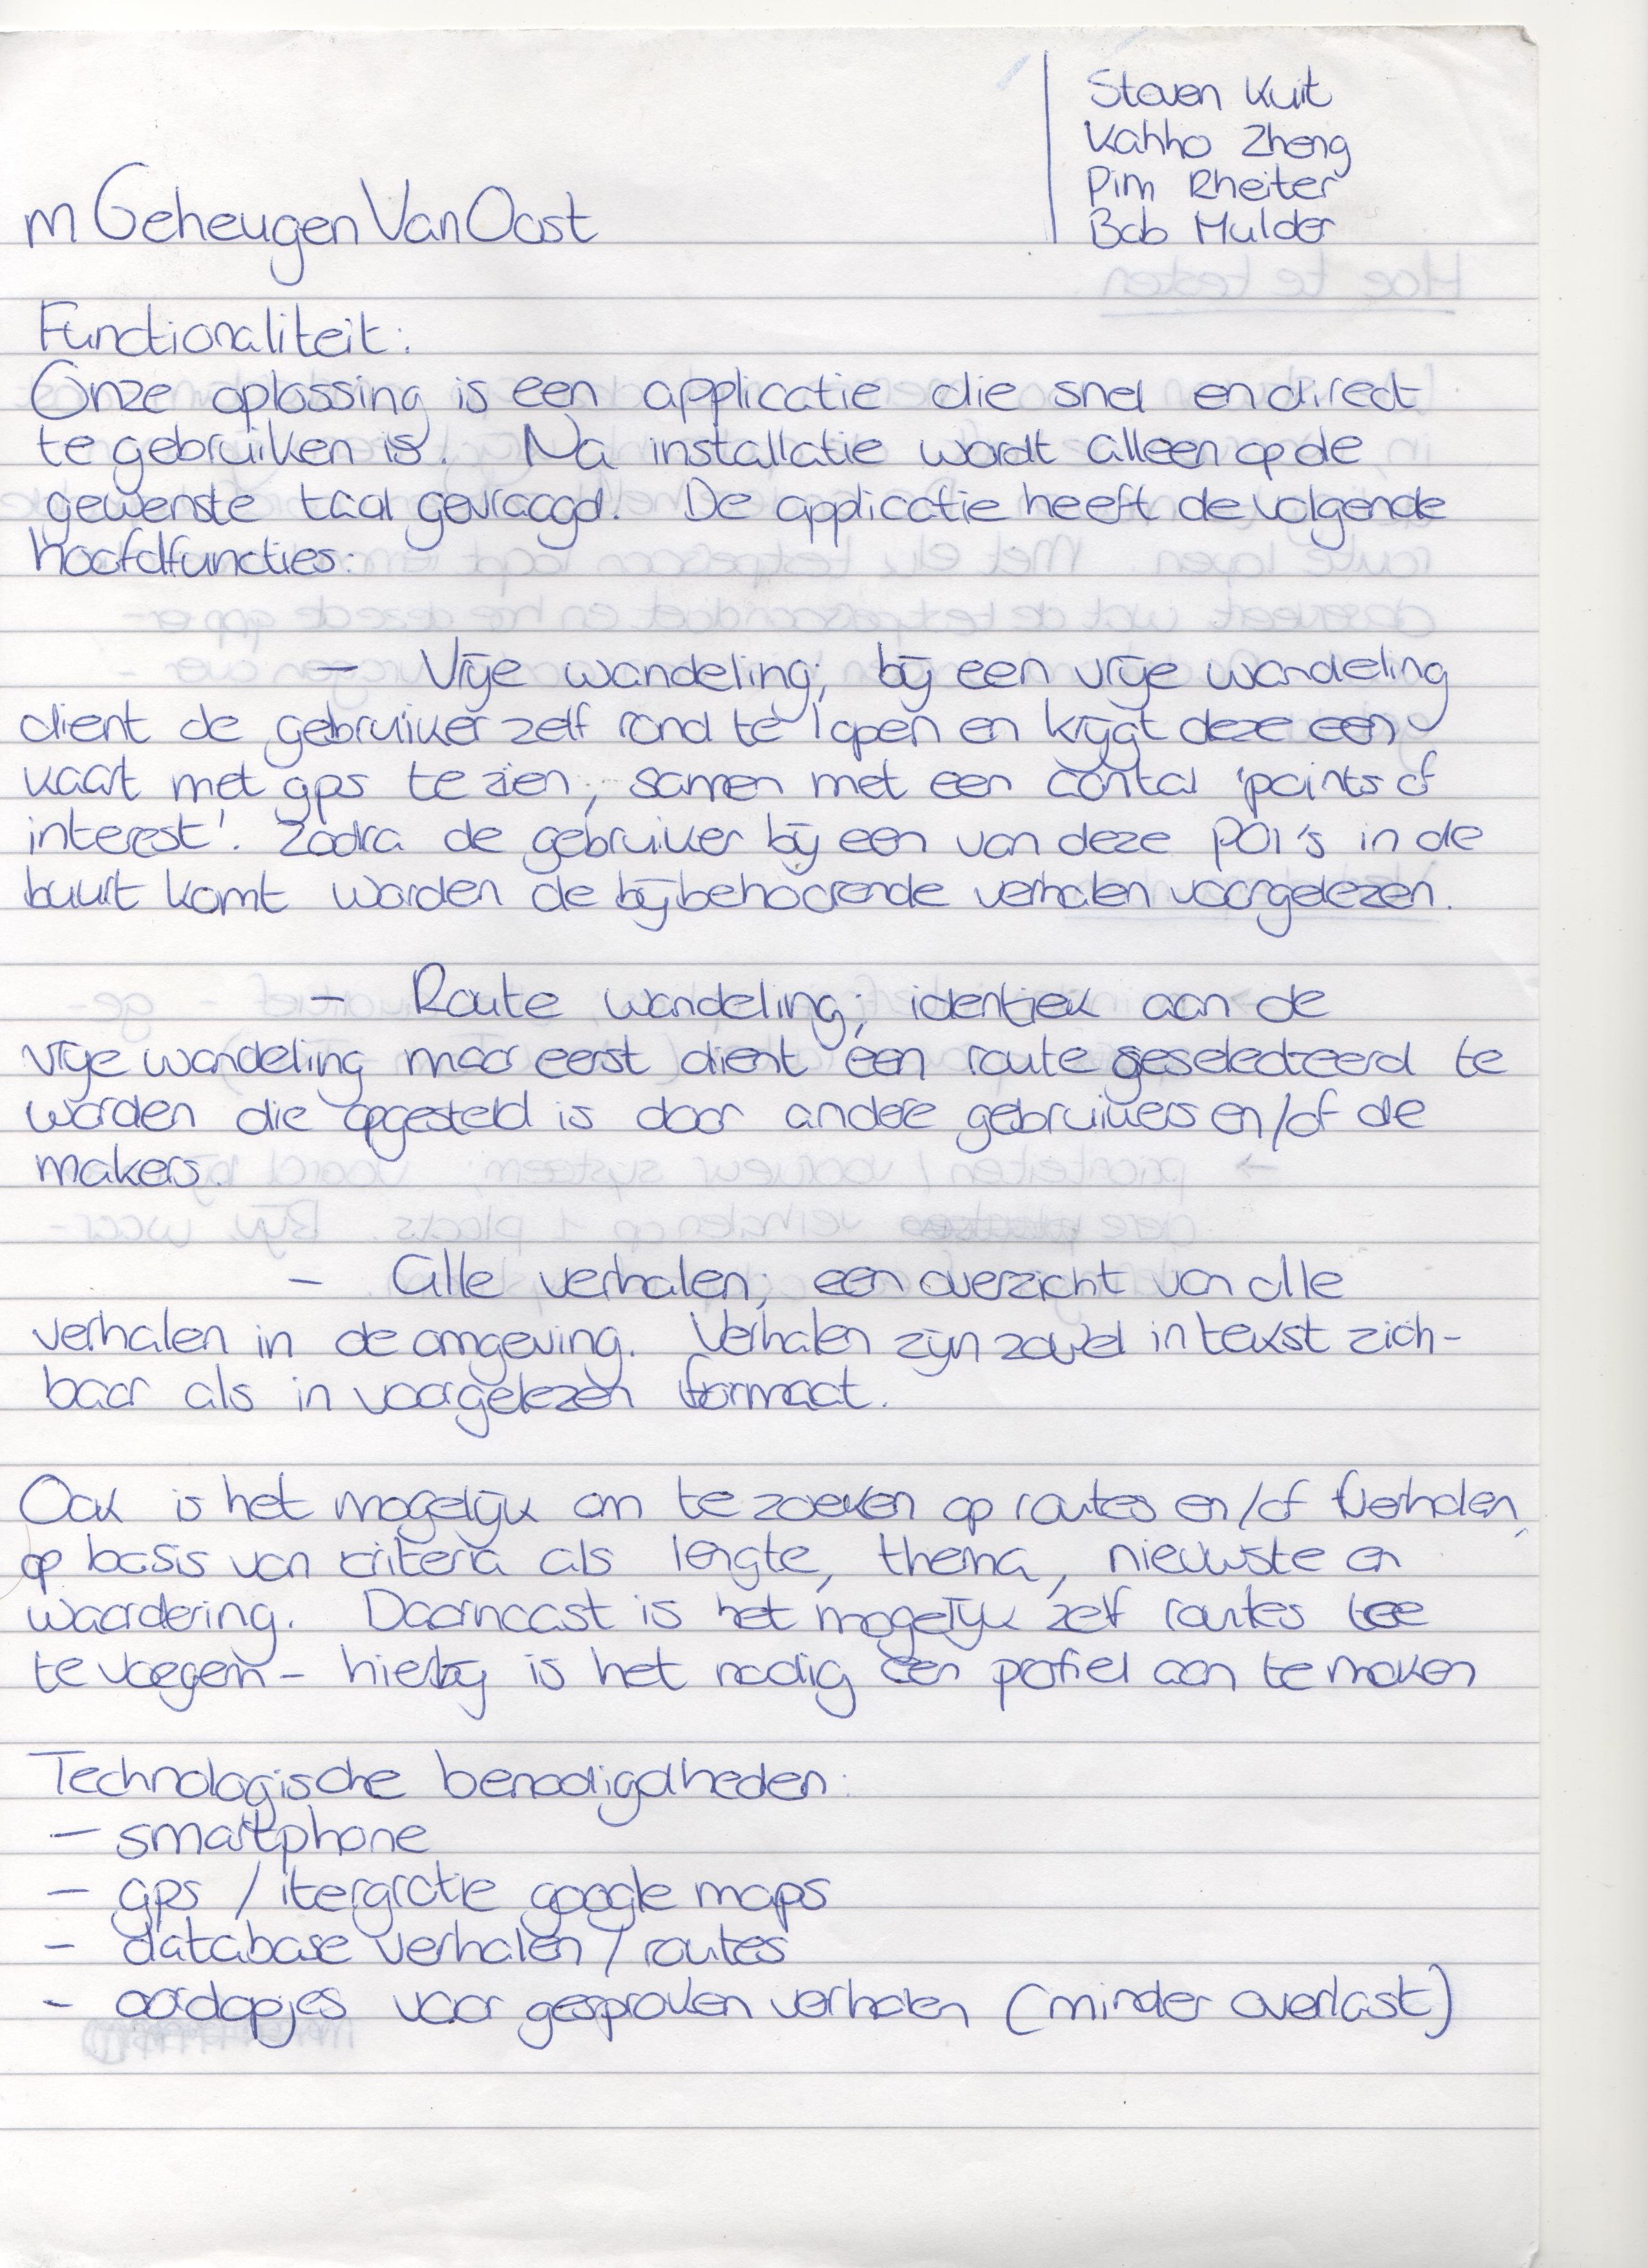 Steven Kuit
Kahho Zheng
Pim Rheiter
Bob Mulder
mGeheugenVanOost
Functionaliteit:
Onze oplossing is een applicatie die snel en direct
te gebruiken is. Na installatie wordt alleen op de
gewenste taal gevraagd. De applicatie heeft de volgende
hoofdfuncties:
- Vrije wandeling; bij een vrije wandeling
dient de gebruiker zelf rond te lopen en krijgt deze een
kaart met gps te zien, samen met een aantal 'points of
interest'. Zodra de gebruiker bij een van deze POI's in de
buurt komt worden de bijbehorende verhalen voorgelezen.
- Route wandeling; identiek aan de
vrije wandeling maar eerst dient een route geselecteerd te
worden die opgesteld is door andere gebruikers en/of de
makers.
- Alle verhalen; een overzicht van alle
verhalen in de omgeving. Verhalen zijn zowel in tekst zich-
baar als in voorgelezen formaat.
Ook is het mogelijk om te zoeken op routes en/of verhalen,
op basis van criteria als lengte, thema, nieuwste en
waardering. Daarnaast is het mogelijk zelf routes toe
te voegen - hierbij is het nodig een profiel aan te maken
Technologische benodigdheden:
- smartphone
- gps / itergratie google maps
- database verhalen / routes
- oordopjes voor gesproken verhalen (minder overlast)